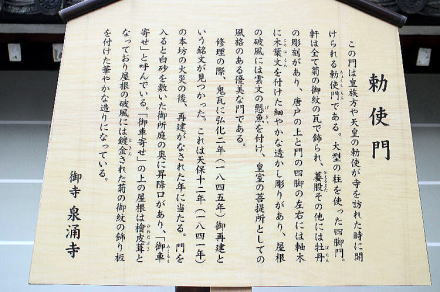 勅使門
この門は皇族方や天皇の勅使が寺を訪れた時に開
けられる勅使門である。大型の柱を使った四脚門、
軒は全て菊の御紋の瓦で飾られ、蟇股その他には牡丹
の彫刻があり、唐戸の上と門の四脚の左右には軸木
に木葉文を付けた細やかな透かし彫りがあり、屋根
の破風には雲文の懸魚を付け、皇室の菩提所としての
風格のある優美な門である。
修理の際、鬼瓦に弘化二年(一八四五年)御再建と
いう銘文が見つかった。これは天保十二年(一八四一年)
の本坊の火災の後、再建がなされた年に当たる。門を
入ると白砂を敷いた御所庭の奥に昇降口があり、「御車
寄せ」と呼んでいる。「御車寄せ」の上の屋根は檜皮葺と
なっており屋根の破風には鍍金された菊の御紋の飾り板
を付けた華やかな造りになっている。
御寺 泉涌寺